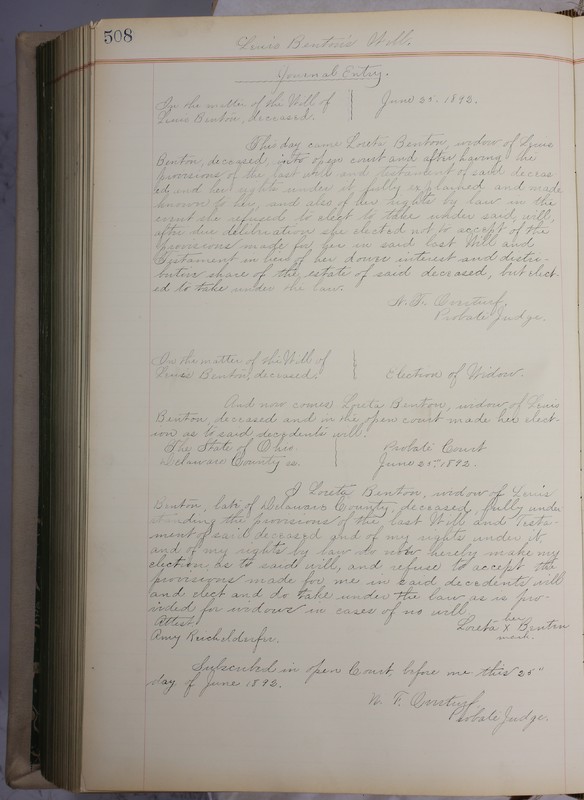 508
Louis Benton's Will.
Journal Entry.
In the matter of the Will of
Louis Benton, deceased.
June 25. 1892.
This day came Loreta Benton, widow of Louis
Benton, deceased, into open court and after having the
provisions of the last will and testament of said deceas
ed, and her rights under it fully explained and made
known to her, and also of her rights by law in the
event she refused to elect to take under said will,
after due deliberation she elected not to accept of the
provisions made for her in said last Will and
Testament in lieu of her dower interest and distri-
butive share of the estate of said deceased, but elect-
ed to take under the law.
Probate Judge.
In the matter of the Will of
Louis Benton, deceased.
Election of Widow.
And now comes Loreta Benton, widow of Louis
Benton, deceased and in the open court made her elect-
ion as to said decedents will.
The State of Ohio
Delaware County ss.
Probate Court
June 25", 1892.
I Loreta Benton, widow of Louis
Benton, late of Delaware County, deceased, fully under
standing the provisions of the last Will and testa-
ment of said deceased and of my rights under it
and of my rights by law do now hereby make my
election as to said will, and refuse to accept the
provisions made for me in said decedents will
and elect and do take under the law as is pro-
vided for widows in cases of no will.
Attest.
her
Loreta X Benton
mark.
Amy
Subscribed in open Court, before me this 25"
day of June 1892.
Probate Judge.